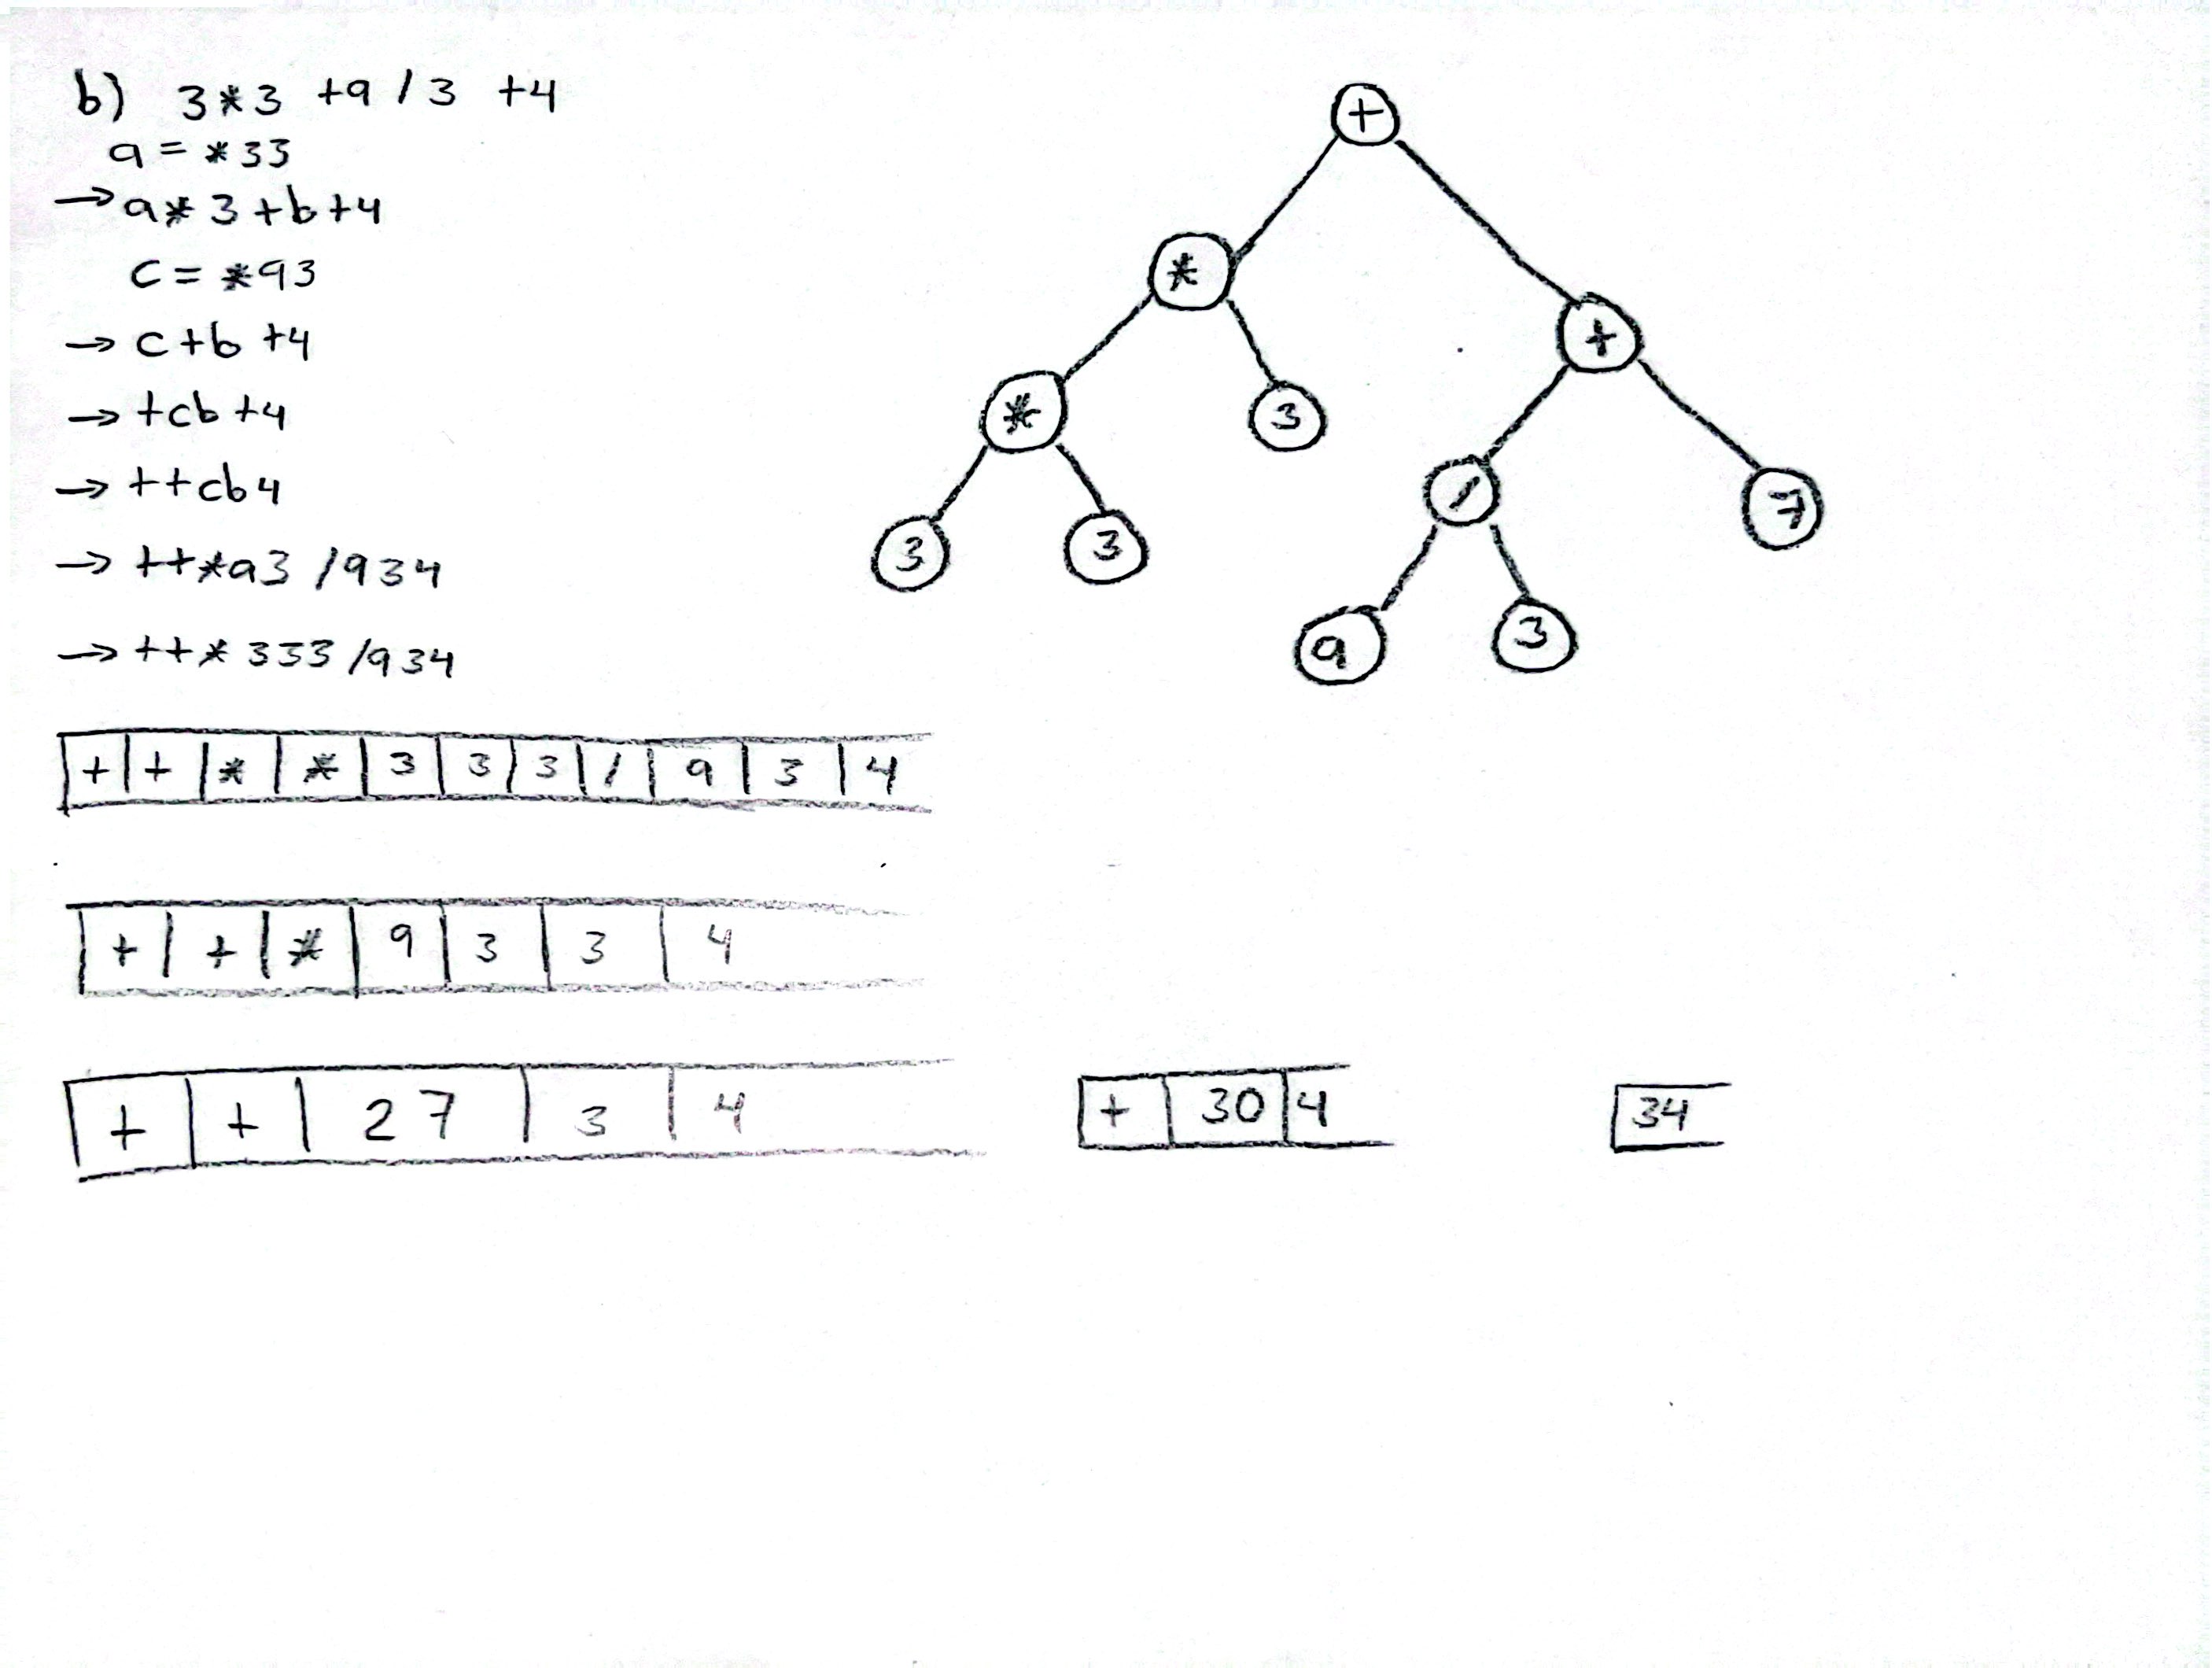 b) 3*3 +9 / 3 +4
a = *33
→ a* 3 +b+4
c = *93
→ c+b +4
→ +cb +4
→ ++cb4
→ ++*a3 /934
→ ++* 333 /934
+
*
+
*
3
/
7
3
3
9
3
+ + * * 3 3 3 / 9 3 4
+ + * 9 3 3 4
+ + 27 3 4
+ 30 4
34